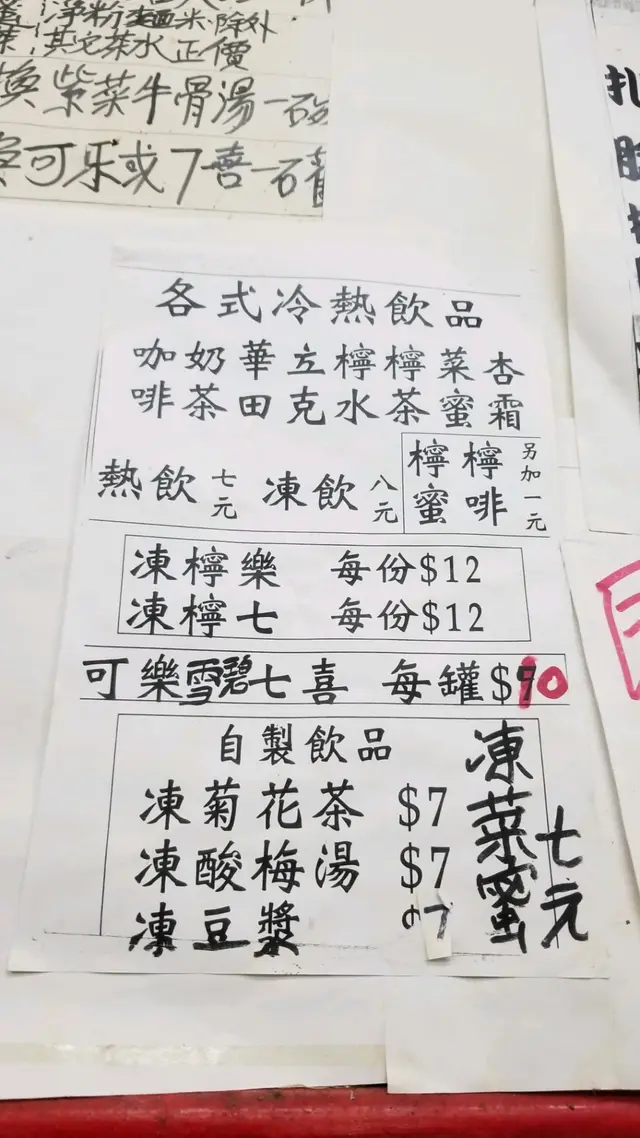 淨粉麵米除外
其它茶水正價
換紫菜牛骨湯一石
可乐或7喜一石
扎
各式冷熱飲品
咖啡 奶茶 華田 立克 檸水 檸茶 菜蜜 杏霜
熱飲 七元 凍飲 八元 檸蜜 檸啡 另加一元
凍檸樂 每份$12
凍檸七 每份$12
可樂雪碧七喜 每罐$10
自製飲品
凍菊花茶 $7
凍酸梅湯 $7
凍豆漿 $7
凍菜蜜 七元